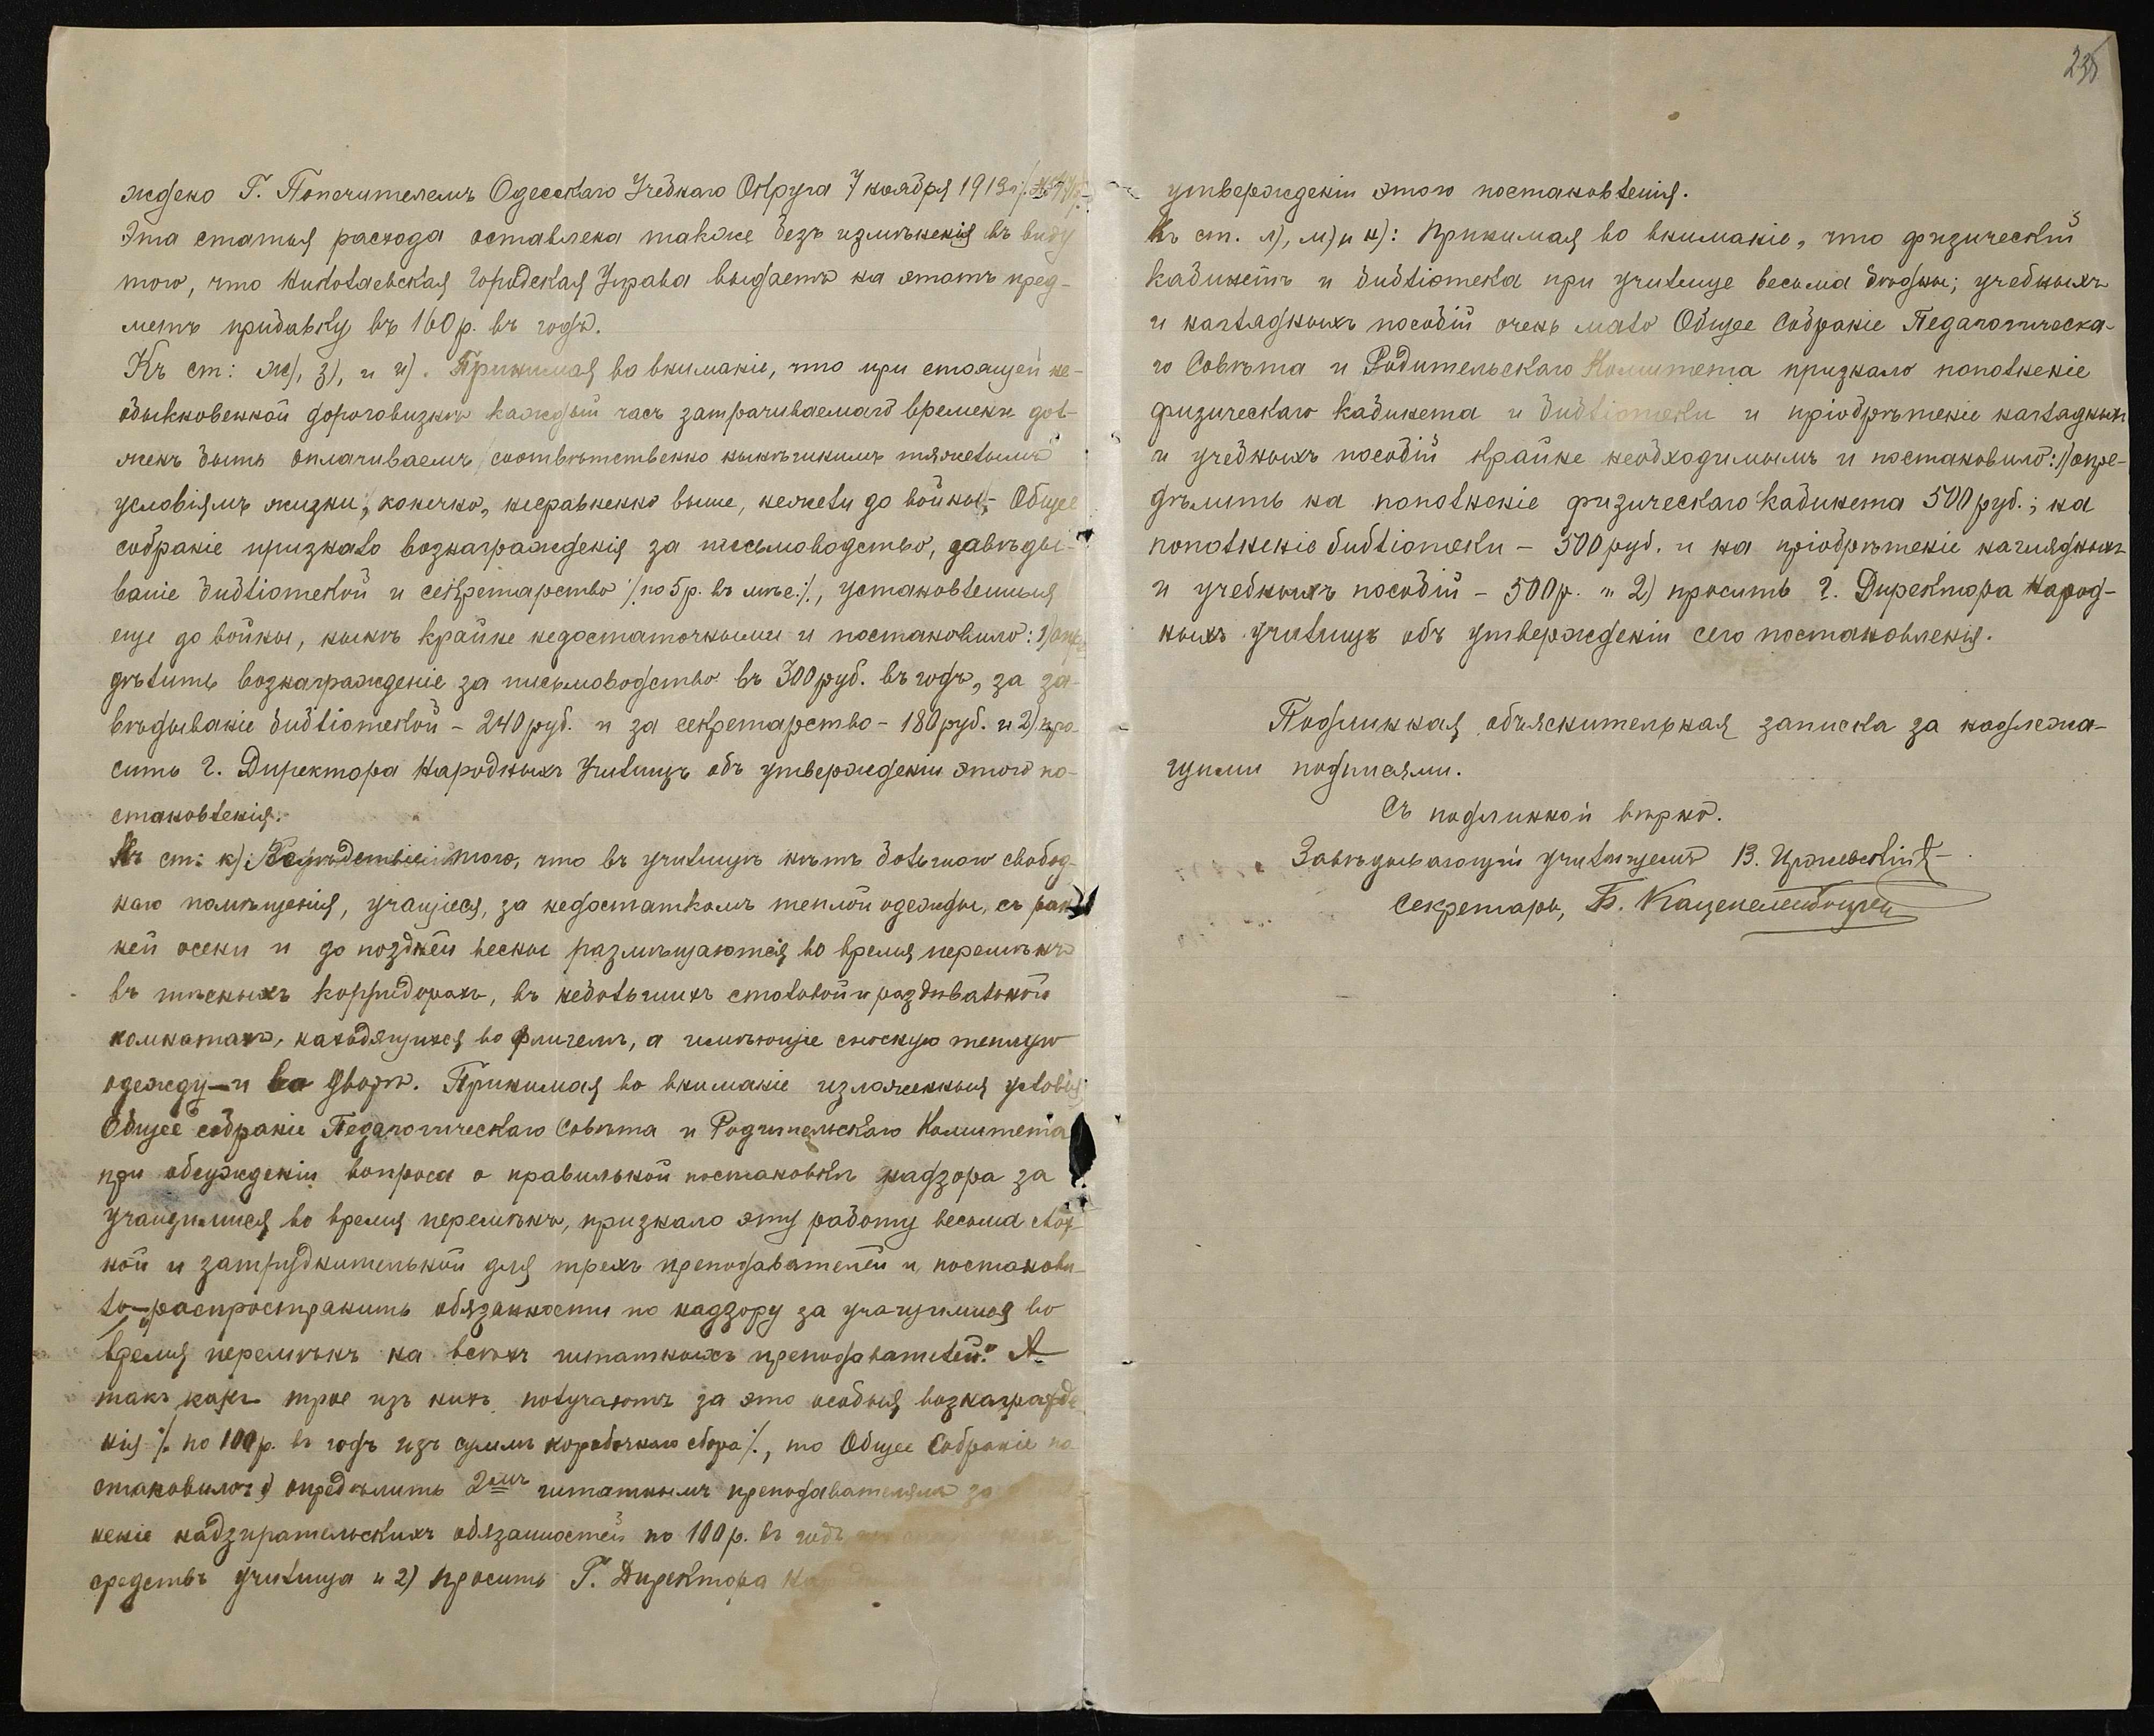 235
ждено Г. Попечителемъ Одесскаго Учебнаго Округа 7 ноября 1913 г.
Эта статья расхода оставлена также безъ измѣненія въ виду
того, что Николаевская Городская Управа выдаетъ на этотъ пред-
метъ прибавку въ 160 р. въ годъ.
Къ ст: ж), з), и и). Принимая во вниманіе, что при стоящей не-
обыкновенной дороговизнѣ каждый часъ затрачиваемаго времени дол-
женъ быть оплачиваемъ соотвѣтственно нынѣшнимъ тяжелымъ
условіямъ жизни, конечно, несравненно выше, нежели до войны,- Общее
собраніе признало вознагражденія за письмоводство, завѣды-
ваніе библіотекой и секретарство /:по 5 р. въ мѣс:/, установленныя
еще до войны, нынѣ крайне недостаточными и постановило: 1) опре
дѣлить вознагражденіе за письмоводство въ 300 руб. въ годъ, за за-
вѣдываніе библіотекой - 240 руб. и за секретарство - 180 руб. и 2) про-
сить г. Директора Народныхъ Училищъ объ утвержденіи этого по-
становленія.
Къ ст: к) Вслѣдствіе того, что въ училищѣ нѣтъ большого свобод-
наго помѣщенія, учащіеся, за недостаткомъ теплой одежды, съ ран-
ней осени и до поздней весны размѣщаются во время перемѣнъ
въ тѣсныхъ корридорахъ, въ небольшихъ столовой и раздѣвальной
комнатахъ, находящихся во флигелѣ, а имѣющіе сносную теплую
одежду-и во дворѣ. Принимая во вниманіе изложенныя условія
Общее собраніе Педагогическаго Совѣта и Родительскаго Комитета
при обсужденіи вопроса о правильной постановкѣ надзора за
учащимися во время перемѣнъ, признало эту работу весьма слож-
ной и затруднительной для трехъ преподавателей и постанови-
ло-распространить обязанности по надзору за учащимися во
время перемѣнъ на всѣхъ штатныхъ преподавателей. А
такъ какъ трое изъ нихъ получаютъ за это особыя вознагражде
нія /:по 100 р. въ годъ изъ суммъ коробочнаго сбора:/, то Общее Собраніе по
становило: 1) опредѣлить 2мъ штатнымъ преподавателямъ за
неніе надзирательскихъ обязанностей по 100 р. въ годъ
средствъ училища и 2) просить Г. Директора
утвержденіи этого постановленія.
Къ ст. л), м) и н): Принимая во вниманіе, что физическій
кабинетъ и библіотека при училище весьма бѣдны; учебныхъ
и наглядныхъ пособій очень мало Общее Собраніе Педагогическа-
го Совѣта и Родительскаго Комитета признало пополненіе
физическаго кабинета и библіотеки и пріобрѣтеніе наглядныхъ
и учебныхъ пособій крайне необходимымъ и постановило: 1) опре-
дѣлить на пополненіе физическаго кабинета 500 руб.; на
пополненіе библіотеки - 500 руб. и на пріобрѣтеніе наглядныхъ
и учебныхъ пособій - 500 р. и 2) просить г. Директора Народ-
ныхъ училищъ объ утвержденіи сего постановленія.
Подлинная объяснительная записка за надлежа-
щими подписями.
Съ подлинной вѣрно.
Завѣдывающій училищемъ В.
Секретарь, Б.